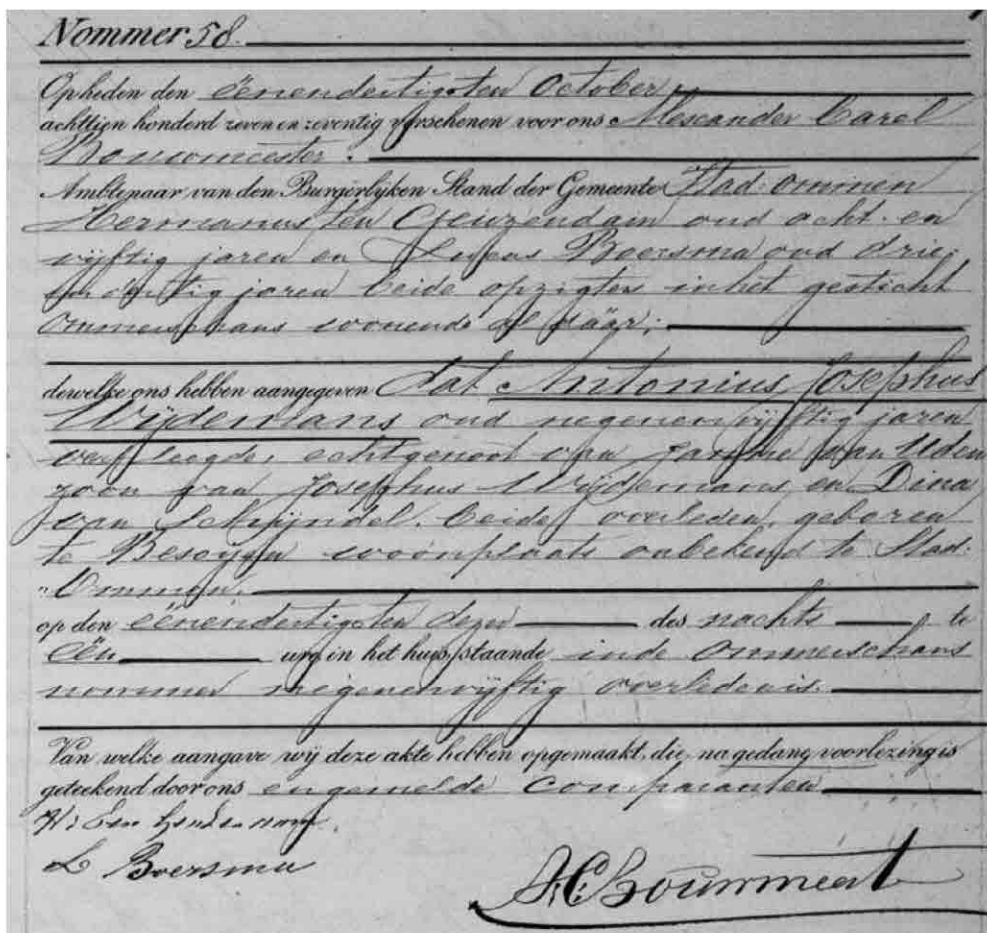 Nommer 58.
Op heden den ëenendertigsten October,
achttien honderd zeven en zeventig verschenen voor ons Alexander Carel
Bouwmeester.
Ambtenaar van den Burgerlijken Stand der Gemeente Stad Ommen
Hermanus ten Geuzendam oud acht en
vijftig jaren en Lucas Boersma oud drie
en jaren beide opzigters in het gesticht
Ommerschans wonende al däär;
dewelke ons hebben aangegeven dat Antonius Josephus
Wijdemans oud negenenvijftig jaren
verpleegde, echtgenoot van van Uden
zoon van Josephus Wijdemans en Dina
van Schijndel, beide overleden, geboren
te Besoyen woonplaats onbekend te Stad
Ommen.
op den ëenendertigsten dezer des nachts te
ëën ure in het huis, staande in de Ommerschans
nommer negenenvijftig overleden is.
Van welke aangave wij deze akte hebben opgemaakt, die, na gedane voorlezing is
geteekend door ons en gemelde comparanten
H: ten
L Boersma
A.C. Bouwmeest